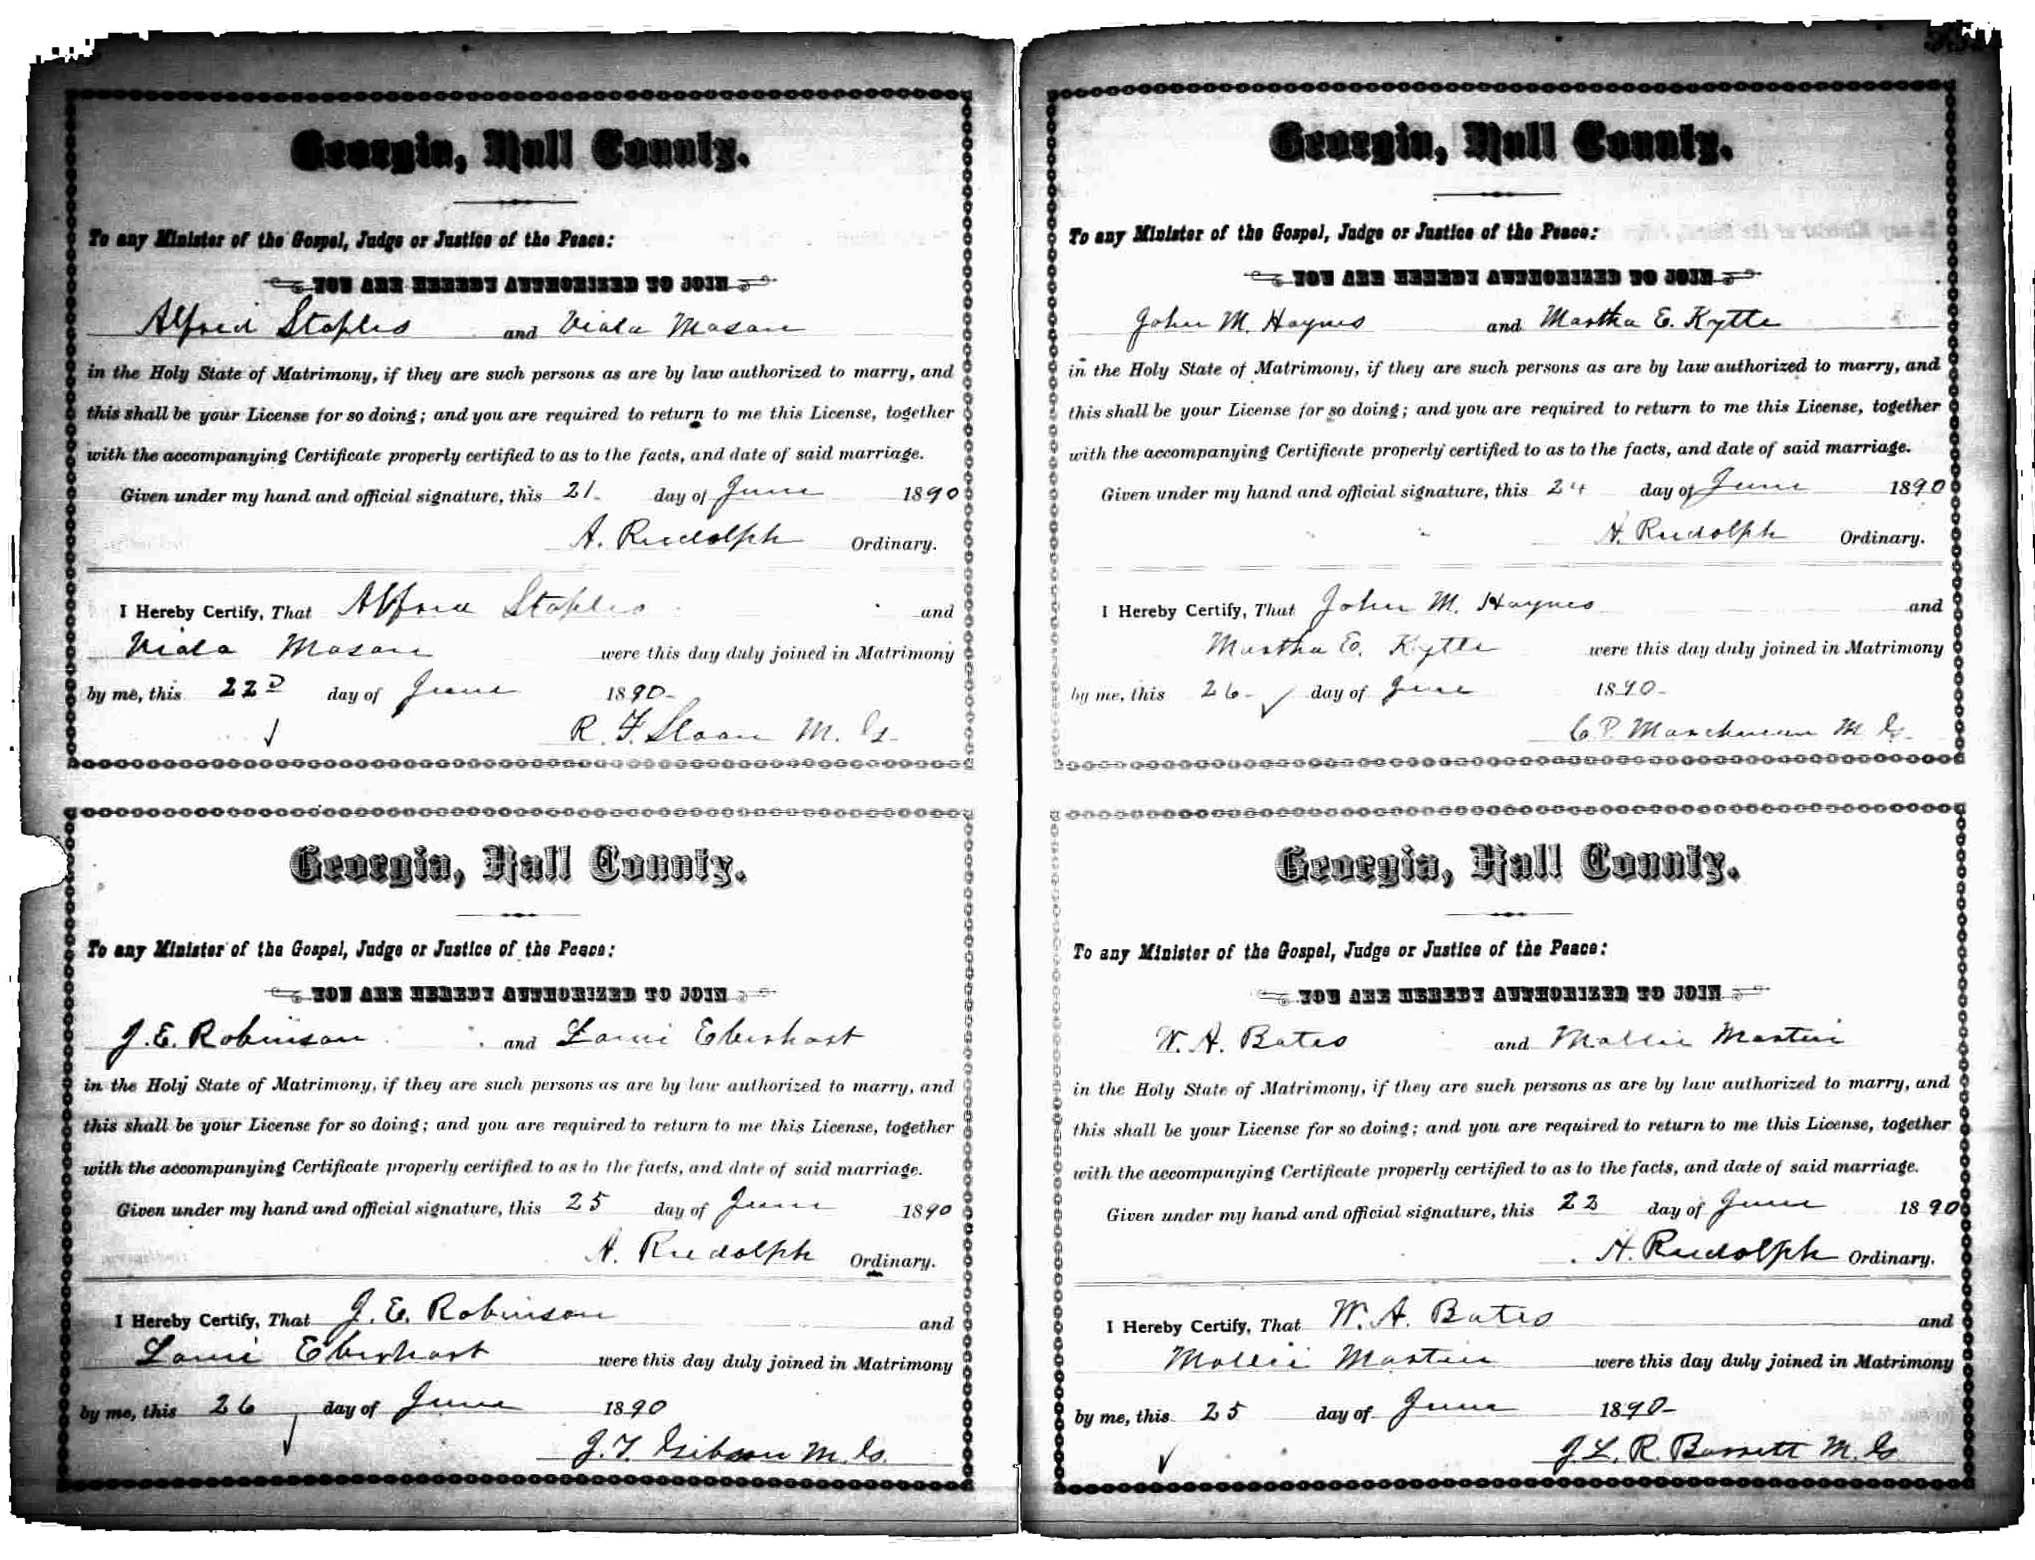 Georgia, Hall County.
To any Minister of the Gospel, Judge or Justice of the Peace:
YOU ARE HEREBY AUTHORIZED TO JOIN
Alfred Staples and Viola Mason
in the Holy State of Matrimony, if they are such persons as are by law authorized to marry, and
this shall be your License for so doing; and you are required to return to me this License, together
with the accompanying Certificate properly certified to as to the facts, and date of said marriage.
Given under my hand and official signature, this 21 day of June 1890
A. Rudolph Ordinary.
I Hereby Certify, That Alfred Staples and
Viola Mason were this day duly joined in Matrimony
by me, this 22D day of June 1890
R. F. Sloan M. G.
Georgia, Hall County.
To any Minister of the Gospel, Judge or Justice of the Peace:
YOU ARE HEREBY AUTHORIZED TO JOIN
J. E. Robinson and Eberhart
in the Holy State of Matrimony, if they are such persons as are by law authorized to marry, and
this shall be your License for so doing; and you are required to return to me this License, together
with the accompanying Certificate properly certified to as to the facts, and date of said marriage.
Given under my hand and official signature, this 25 day of June 1890
A. Rudolph Ordinary.
I Hereby Certify, That J. E. Robinson and
Eberhart were this day duly joined in Matrimony
by me, this 26 day of June 1890
J. T. Gibson M. G.
Georgia, Hall County.
To any Minister of the Gospel, Judge or Justice of the Peace:
YOU ARE HEREBY AUTHORIZED TO JOIN
John M. Haynes and Martha E. Kytle
in the Holy State of Matrimony, if they are such persons as are by law authorized to marry, and
this shall be your License for so doing; and you are required to return to me this License, together
with the accompanying Certificate properly certified to as to the facts, and date of said marriage.
Given under my hand and official signature, this 24 day of June 1890
A. Rudolph Ordinary.
I Hereby Certify, That John M. Haynes and
Martha E. Kytle were this day duly joined in Matrimony
by me, this 26 day of June 1890
M. G.
Georgia, Hall County.
To any Minister of the Gospel, Judge or Justice of the Peace:
YOU ARE HEREBY AUTHORIZED TO JOIN
W. A. Bates and Mollie Martin
in the Holy State of Matrimony, if they are such persons as are by law authorized to marry, and
this shall be your License for so doing; and you are required to return to me this License, together
with the accompanying Certificate properly certified to as to the facts, and date of said marriage.
Given under my hand and official signature, this day of June 1890
A. Rudolph Ordinary.
I Hereby Certify, That W. A. Bates and
Mollie Martin were this day duly joined in Matrimony
by me, this 25 day of June 1890
J. L. R. Barrett M. G.